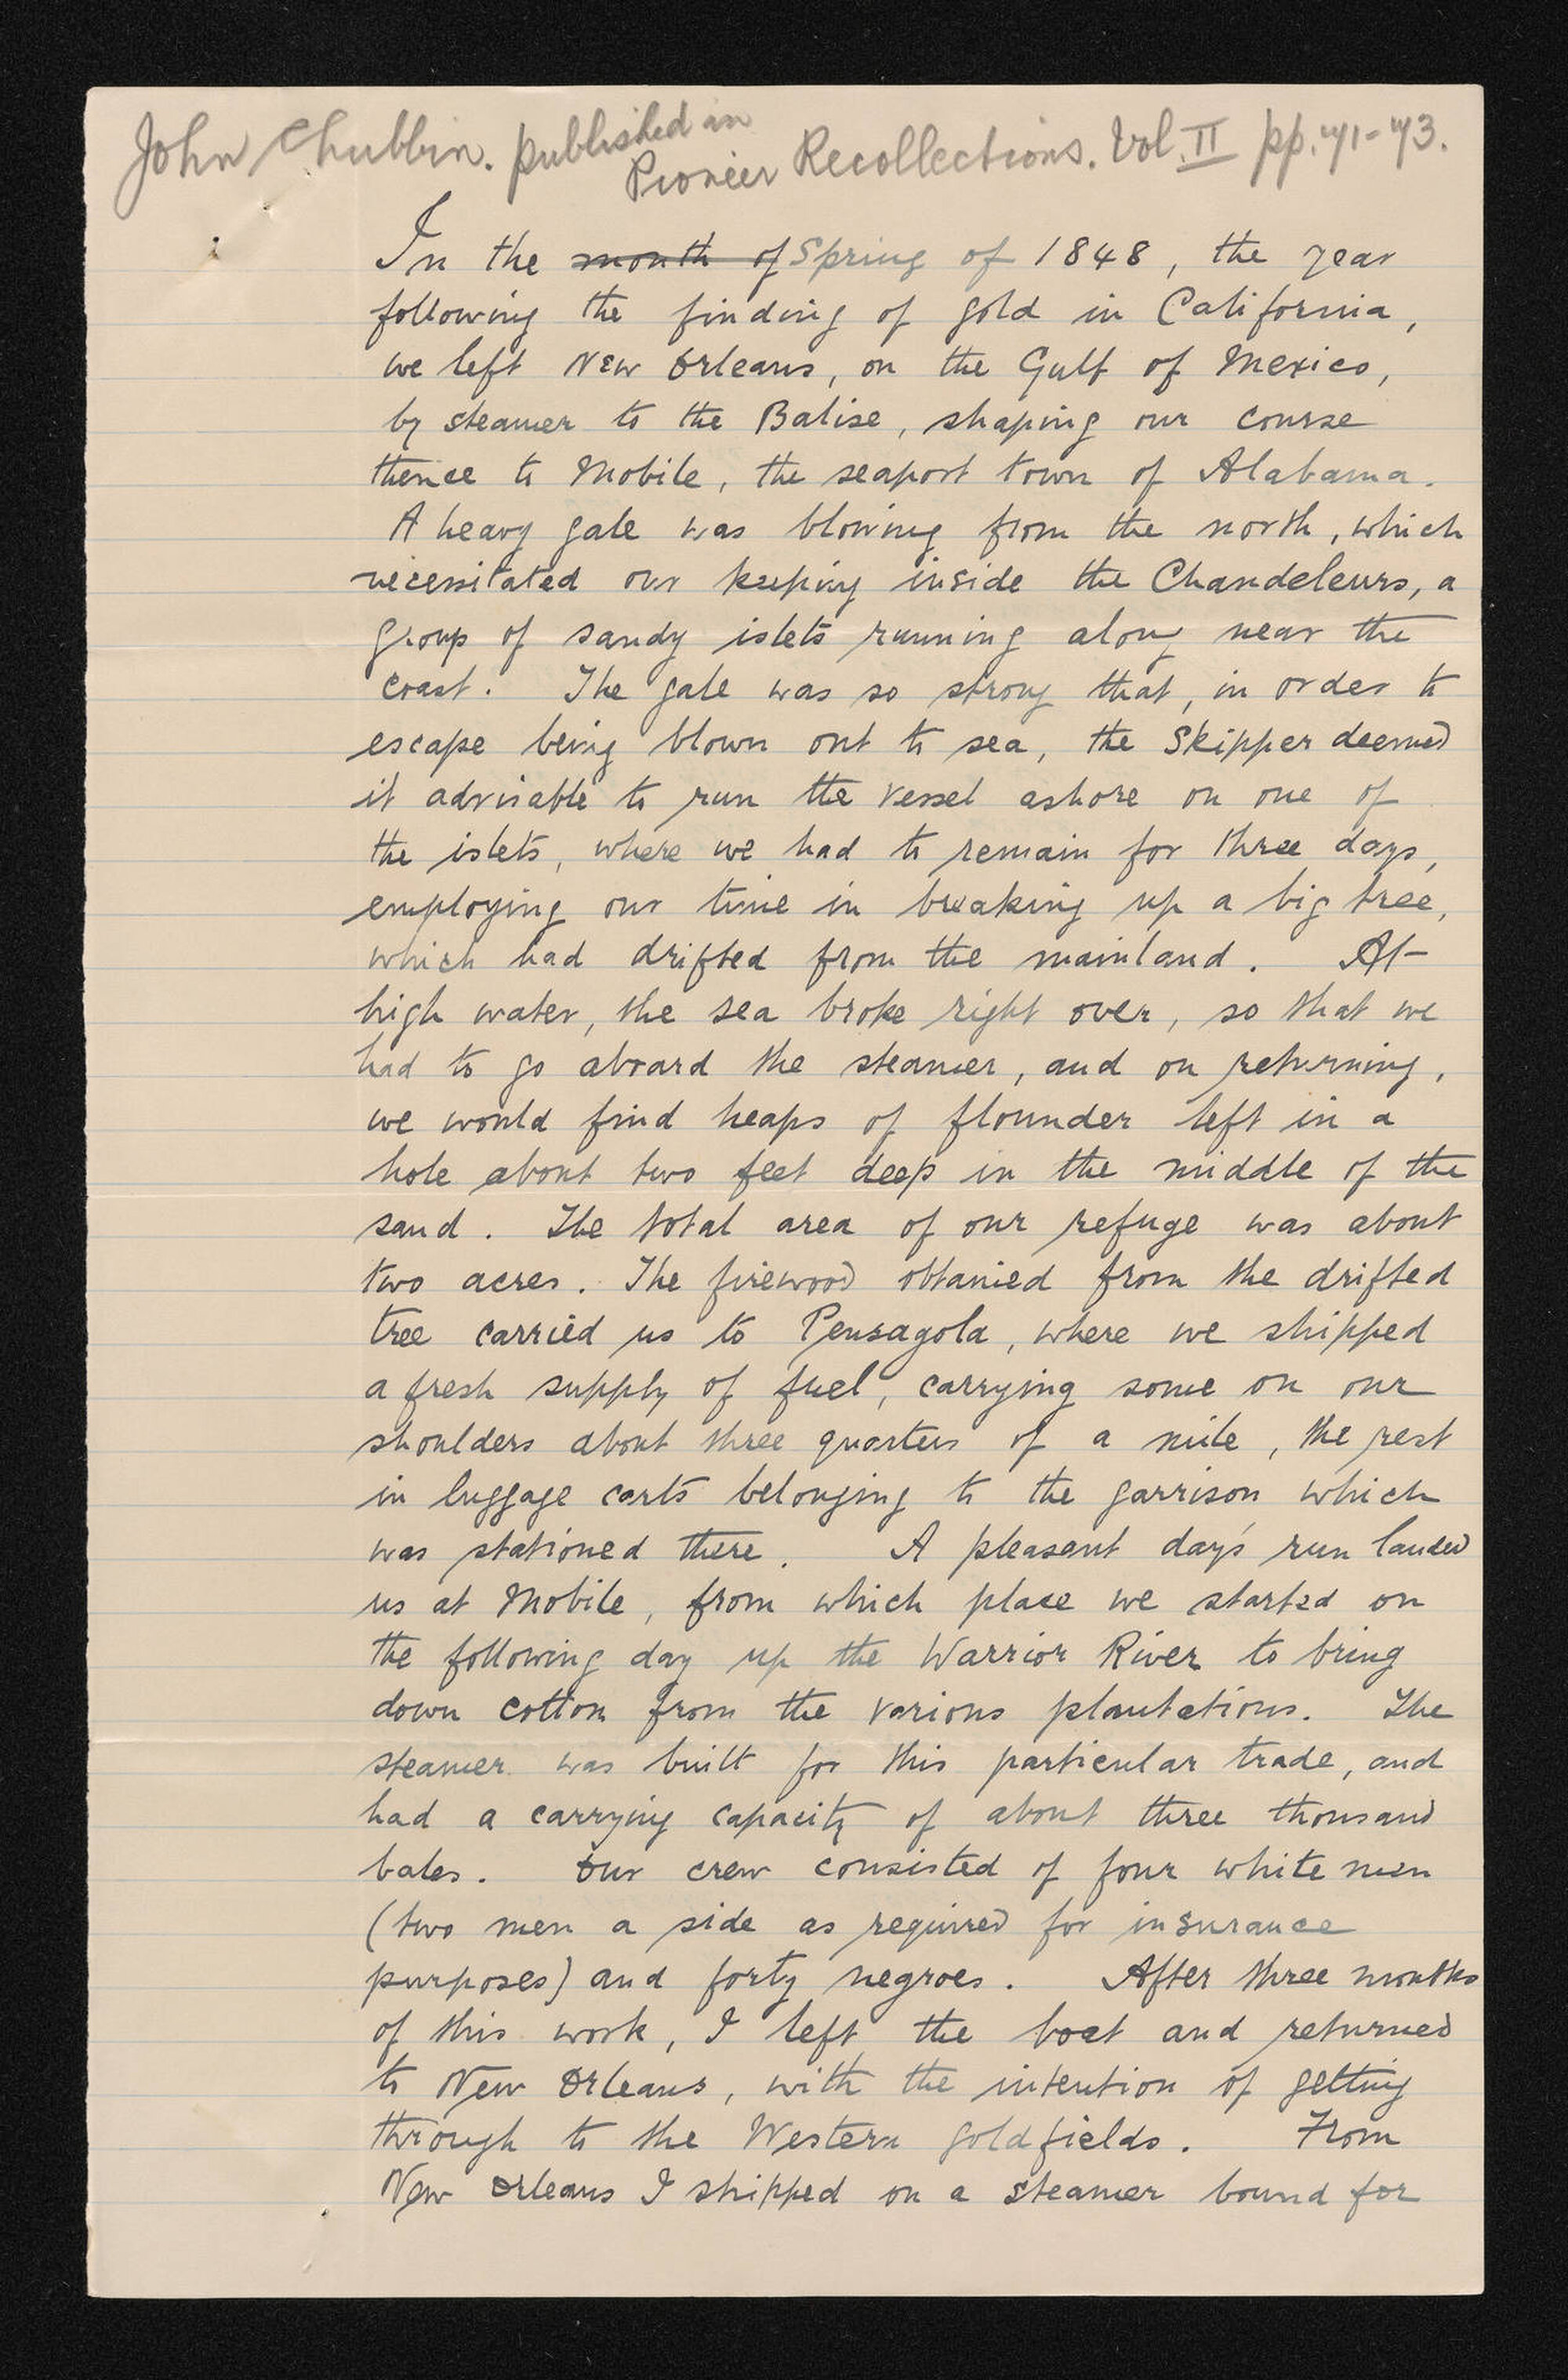 John Chubbin. published in
Pioneer Recollections. Vol. II pp. 71-73.
In the month of Spring of 1848, the year
following the finding of gold in California,
we left New Orleans, on the Gulf of Mexico,
by steamer to the Balise, shaping our course
thence to Mobile, the seaport town of Alabama.
A heavy gale was blowing from the north, which
necessitated our keeping inside the Chandeleurs, a
group of sandy islets running along near the
coast. The gale was so strong that, in order to
escape being blown out to sea, the Skipper deemed
it advisable to run the vessel ashore on one of
the islets, where we had to remain for three days,
employing our time in breaking up a big tree,
which had drifted from the mainland. At
high water, the sea broke right over, so that we
had to go aboard the steamer, and on returning,
we would find heaps of flounder left in a
hole about two feet deep in the middle of the
sand. The total area of our refuge was about
two acres. The firewood obtained from the drifted
tree carried us to Pensagola, where we shipped
a fresh supply of fuel, carrying some on our
shoulders about three quarters of a mile, the rest
in luggage carts belonging to the garrison which
was stationed there. A pleasant day's run landed
us at Mobile, from which place we started on
the following day up the Warrior River to bring
down cotton from the various plantations. The
steamer was built for this particular trade, and
had a carrying capacity of about three thousand
bales. Our crew consisted of four white men
(two men a side as required for insurance
purposes) and forty negroes. After three months
of this work, I left the boat and returned
to New Orleans, with the intention of getting
through to the Western goldfields. From
New Orleans I shipped on a steamer bound for